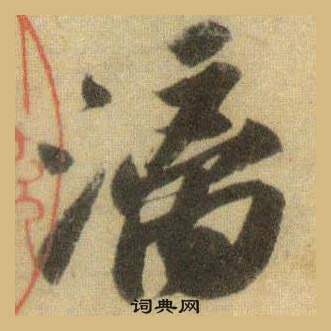 滴
词典网